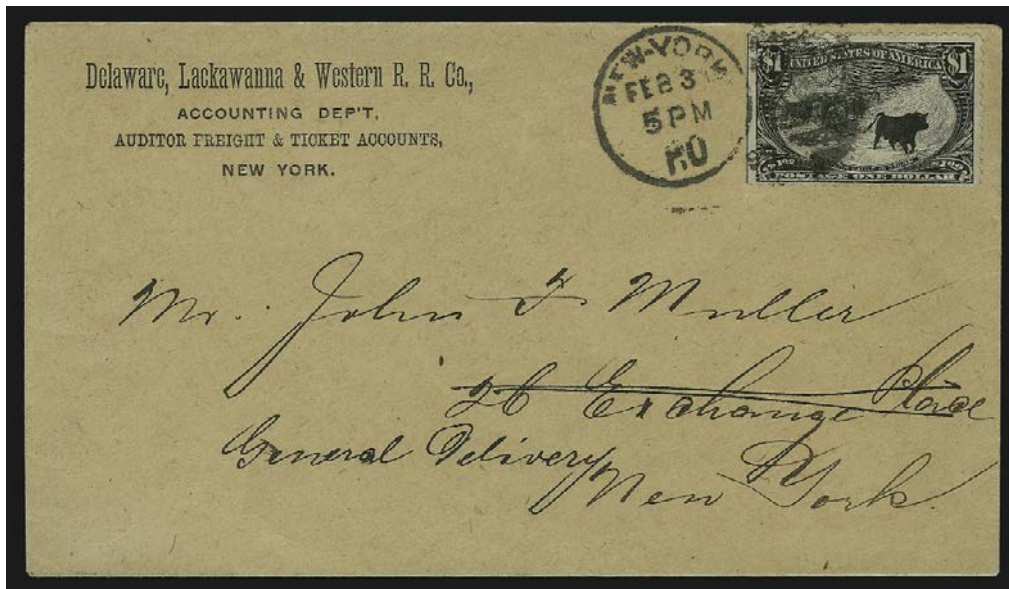 Delaware, Lackawanna & Western R. R. Co.,
ACCOUNTING DEP'T,
AUDITOR FREIGHT & TICKET ACCOUNTS,
NEW YORK.
NEW-YORK
FEB 3
5 PM
$1 UNITED STATES OF AMERICA $1
POSTAGE ONE DOLLAR
Mr. John F Muller
26 Exchange Place
General Delivery
New York.